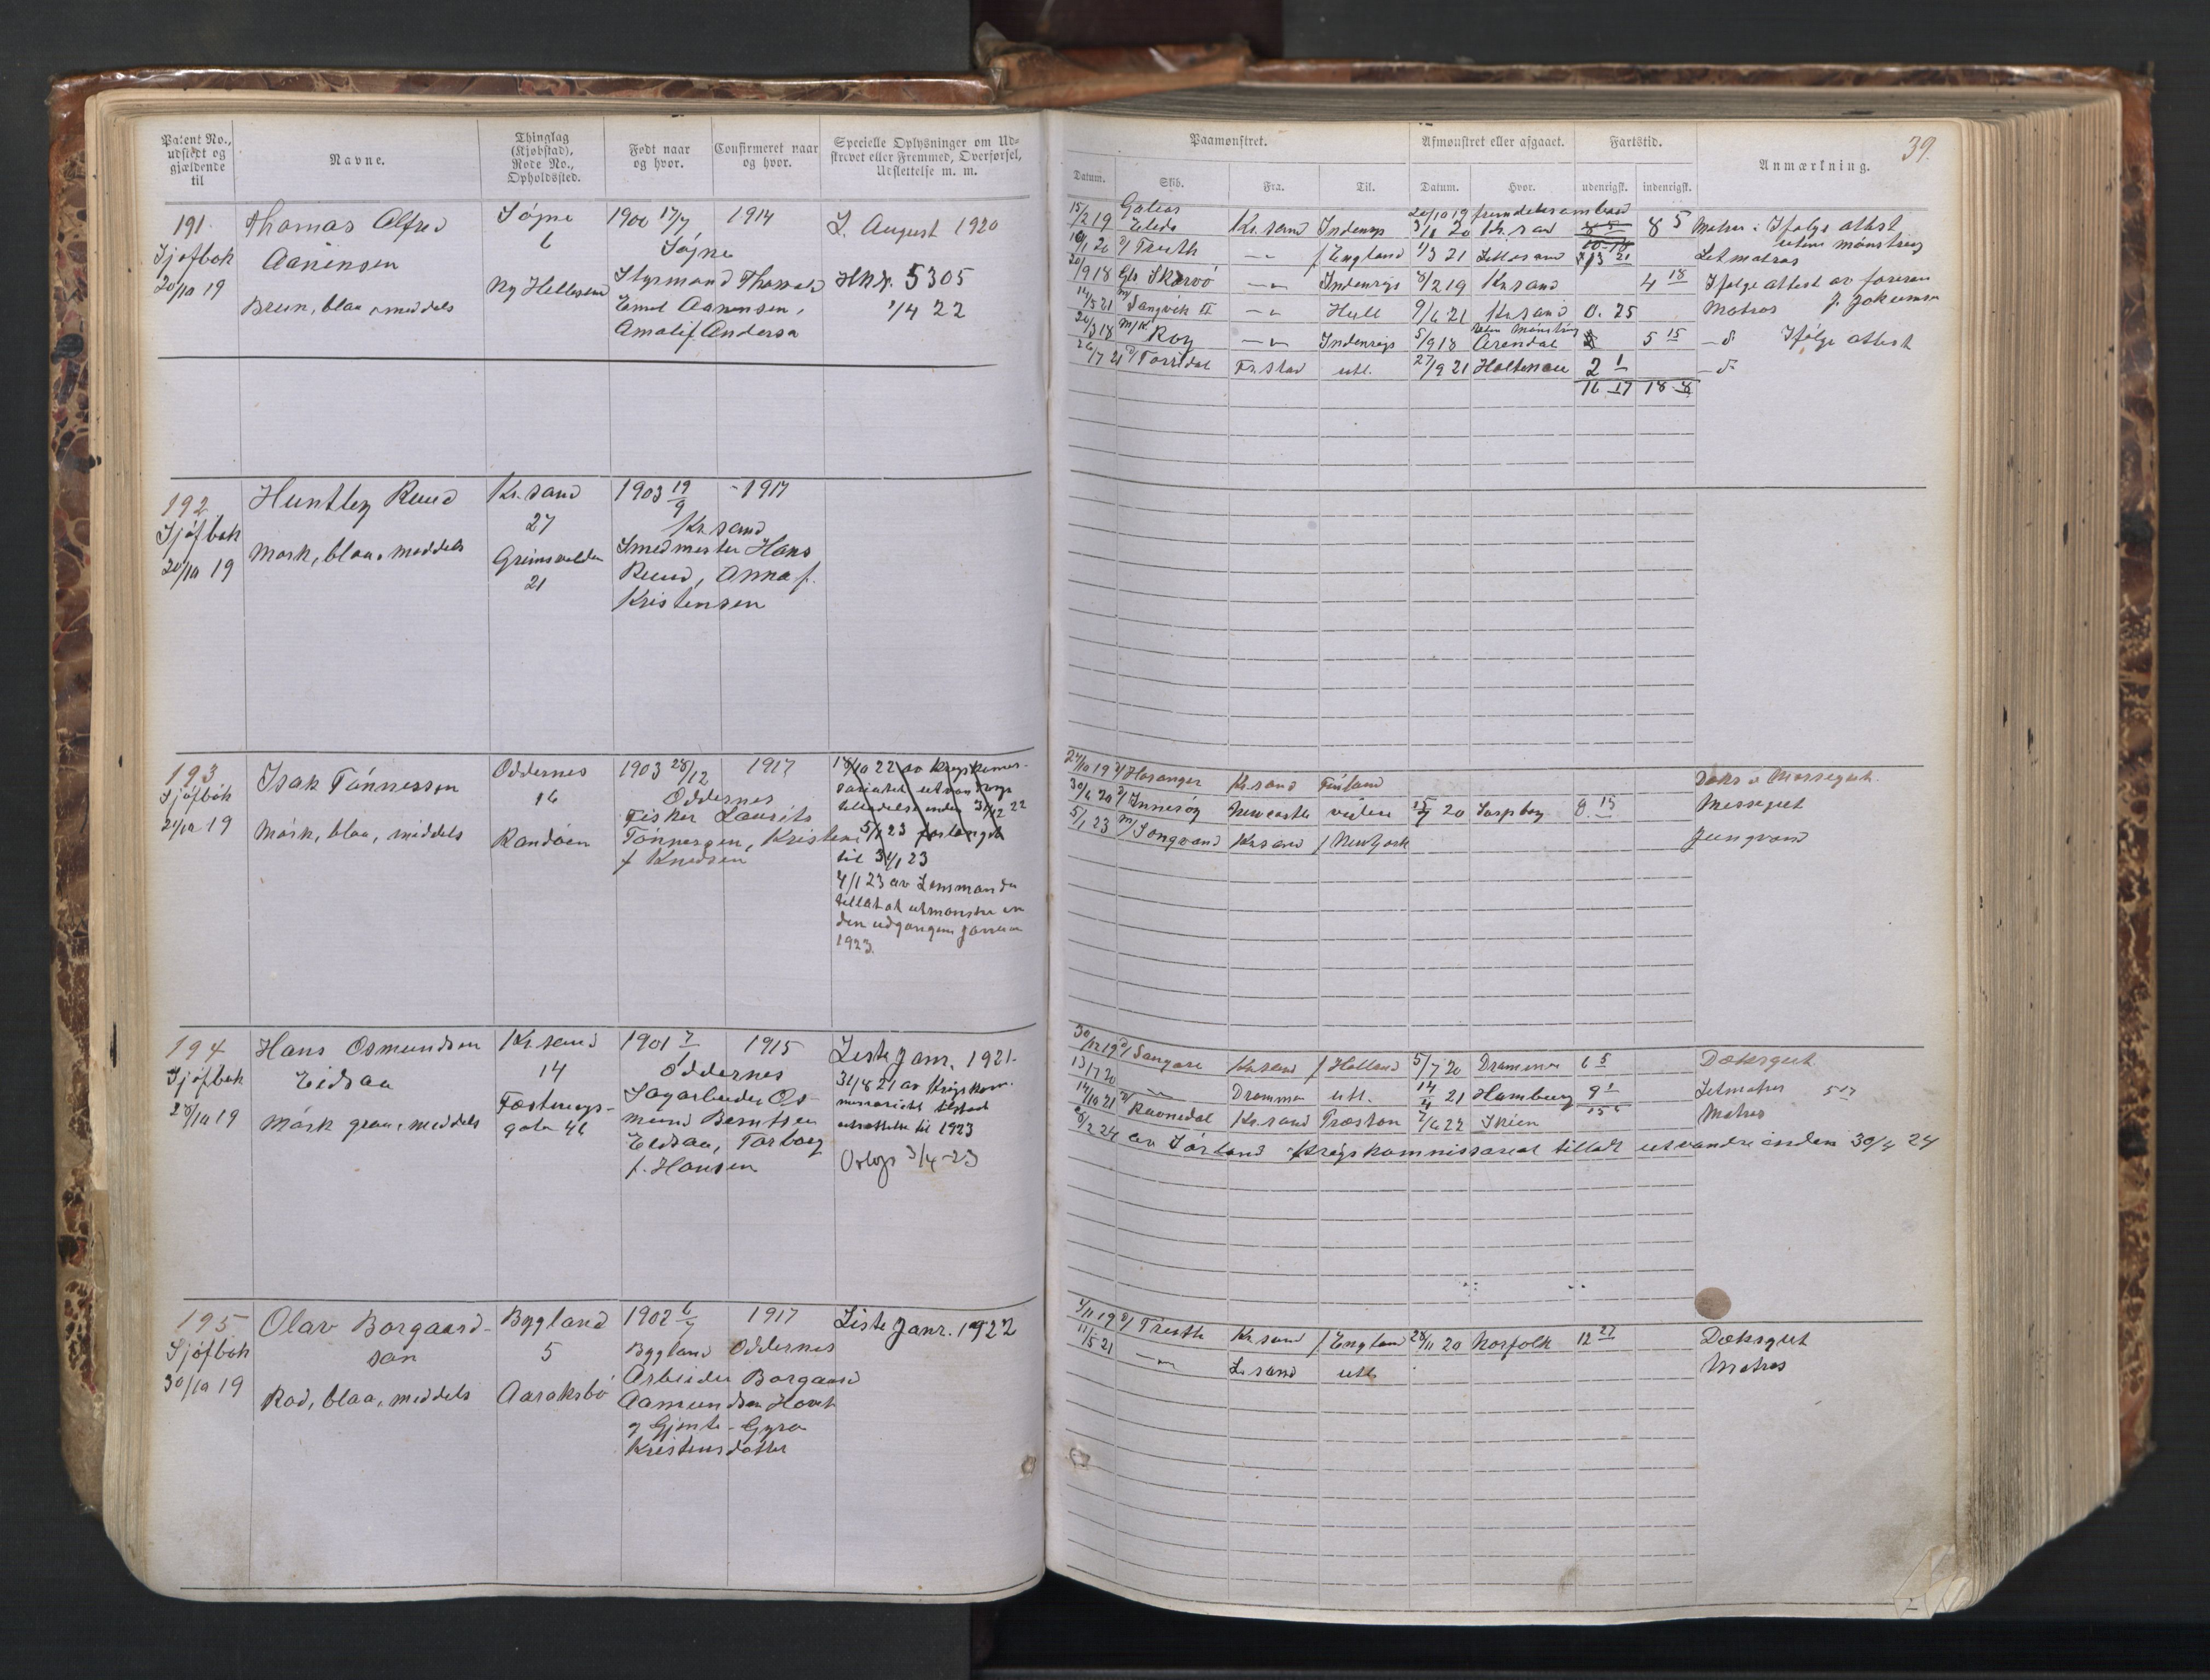 Patent No., udstedt og gjældende til
Navne.
Thinglag (Kjøbstad), Rode No., Opholdssted.
Født naar og hvor.
Confirmeret naar og hvor.
Specielle Oplysninger om Udskrevet eller Fremmed, Overførsel, Udslettelse m. m.
Paamønstret.
Afmønstret eller afgaaet.
Fartstid.
Anmærkning.
39.
Datum.
Skib.
Fra.
Til.
Datum.
Hvor.
udenrigsk.
indenrigsk.
191.
Sjøfbok
20/10 19
Thomas Alfred
Aanensen
Brun, blaa, middels
Søgne
6
Ny Hellesund
1900 17/7
1914
Søgne
Styrmand Thorvald
Emil Aanensen,
Amalie f. Andersen
L. August 1920
5305
1/4 22
15/2 19
Kr.sand
Indenrigs
20/10 19 fremdeles ombord
3/1 20
Kr.sand
8 5
Matros. Ifølge attest
uten mønstring
1/1 20
—"—
f England
1/3 21
Lillesand
13 21
Letmatros
20/9 18
—"—
Indenrigs
8/2 19
Kr.sand
4 18
Ifølge attest av føreren
14/5 21
Sangvik II
—"—
Hull
9/6 21
Kr.sand
0. 25
Matros
20/3 18
M/K
Roy
—"—
Indenrigs
5/9 18
Uten Mønstring
Arendal
5 15
Ifølge attest
26/7 21
Torridal
Fr.stad
utl.
27/9 21
Holtenau
2 1
16 17
18 8
192
Sjøfbok
20/10 19
Huntley Ruud
Mørk, blaa, middels
Kr.sand
27
Grimsvolden
21
1903 19/9
- 1917
Kr.sand
Smedmester Hans
Ruud, Anna f.
Kristensen
193
Sjøfbok
24/10 19
Isak Tønnessen
Mørk, blaa, middels
Oddernes
16
Randøen
1903 28/12
1917
Oddernes
Fisker Laurits
Tønnesen, Kristine
f Knudsen
18/10 22 av Krigskommis-
sariatet utvandrings
tilladelse inden 31/12 22
5/1 23 forlænget
til 31/1 23
4/1 23 av Lensmanden
tillat at utmønstre in
den udgangen januar
1923.
27/10 19
Hosanger
Kr.sand
Finland
Dæks & Messegut.
30/6 20
Newcastle
videre
15/7 20
Sarpsborg
8. 15
Messegut
5/1 23
Songvand
Kr.sand
f New York
Jungmand
194
Sjøfbok
28/10 19
Hans Osmundsen
Eidsaa
Mørk, graa, middels
Kr.sand
14
Festnings-
gaten 46
1901 7/1
1915
Oddernes
Sagarbeider Os-
mund Berntsen
Eidsaa, Torborg
f. Hansen
Liste Janr. 1921.
31/8 21 av Krigskom-
missariatet tilstaat
utsættelse til 1923
Orlogs 3/4 - 23
30/12 19
Sangare
Kr.sand
f Holland
5/7 20
Drammen
6 5
Dæksgut
13/7 20
—"—
Drammen
utl.
14/4 21
Hamburg
9 1
15 6
Letmatros
5 17
14/10 21
Ravnedal
Kr.sand
Preston
7/6 22
Skien
Matros
8/2 24 av Sørland Krigskommissariat tilladt utvandre inden 30/4 24
195
Sjøfbok
30/10 19
Olav Borgaard-
sen
Rød, blaa, middels
Bygland
5
Aaraksbø
1902 6/7
1917
Bygland
Oddernes
Arbeider Borgaard
Aamundsen Hovet
og Gjente - Gyro
Kristensdatter
Liste Janr. 1922
4/11 19
Kr.sand
f England
28/11 20
Norfolk
12 27
Dæksgut
11/5 21
—"—
L.sand
utl.
Matros